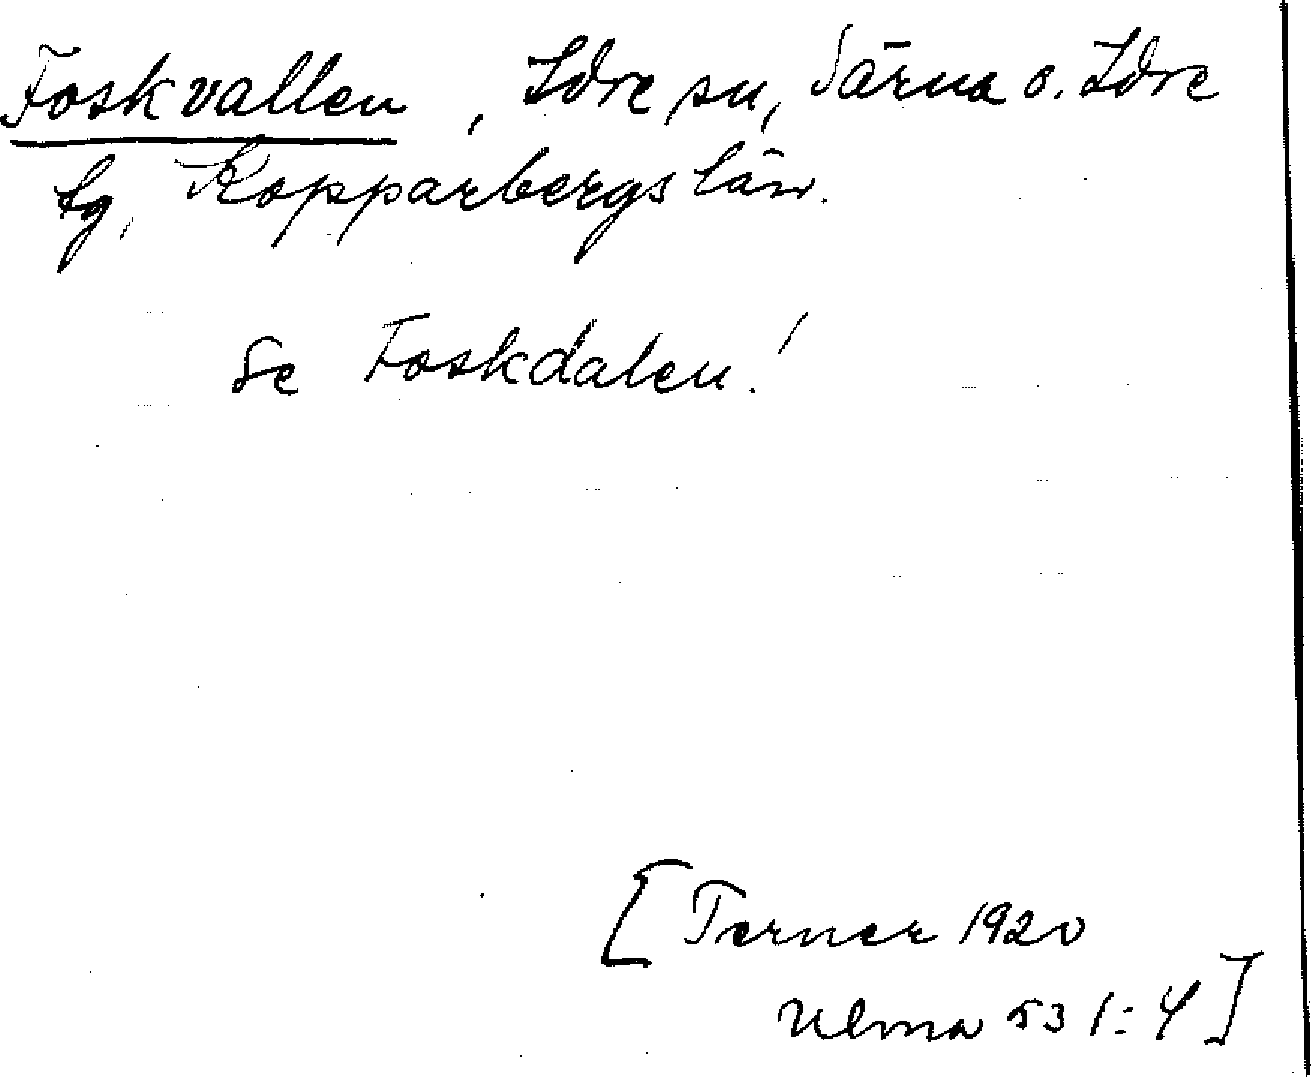 Foskvallen, Idre sn, Särna o. Idre
tg, Kopparbergs län.
Se Foskdalen!
[Terner 1920
Ulma 53 1:4]